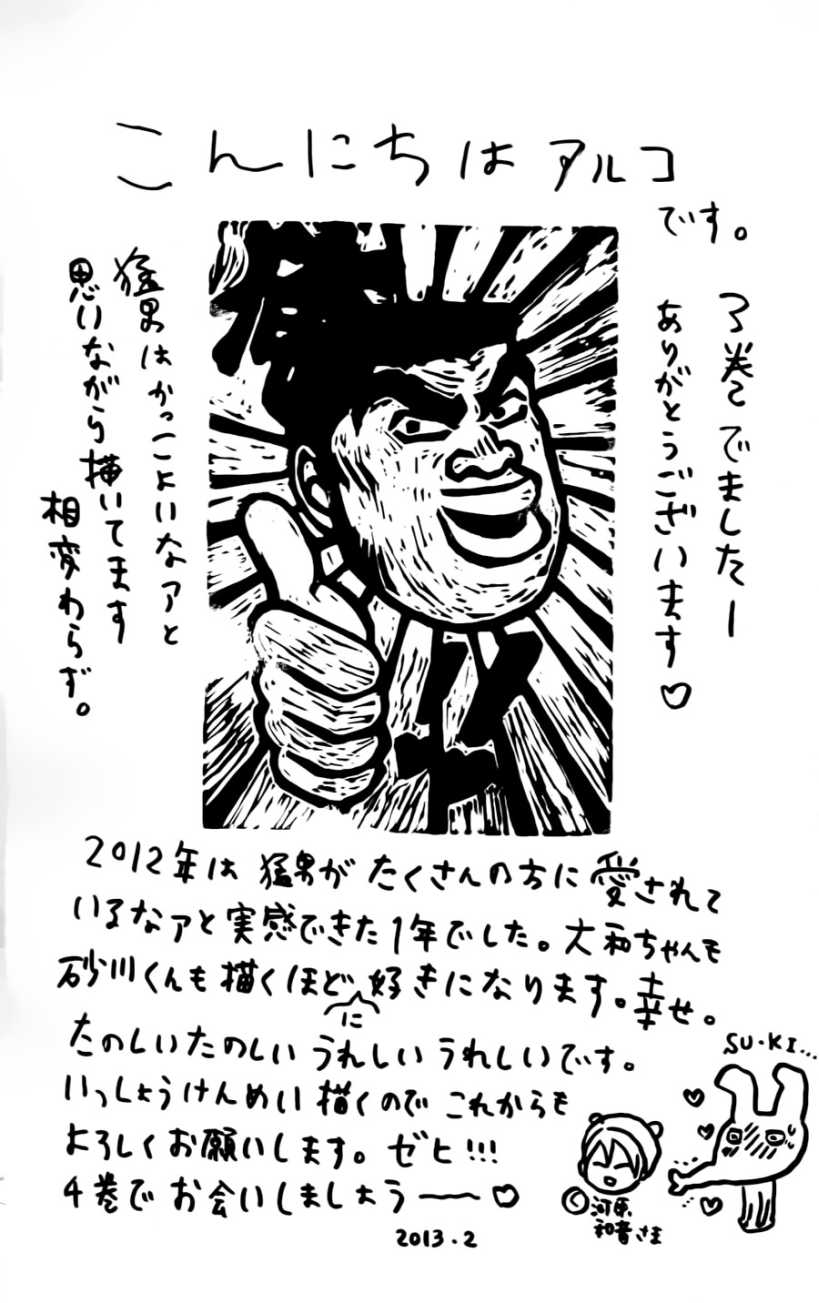 こんにちは アルコ
です。
3巻でましたー
ありがとうございます♡
猛男はかっこよいいなァと
思いながら描いてます
相変わらず。
2012年は 猛男が たくさんの方に愛されて
いるなァと実感できた1年でした。大和ちゃんも
砂川くんも描くほどに好きになります。幸せ。
たのしいたのしい うれしい うれしいです。
いっしょうけんめい 描くので これからも
よろしくお願いします。ゼヒ!!!
4巻で お会いしましょうーー♡
SU・KI...
©河原
和音さま
2013.2